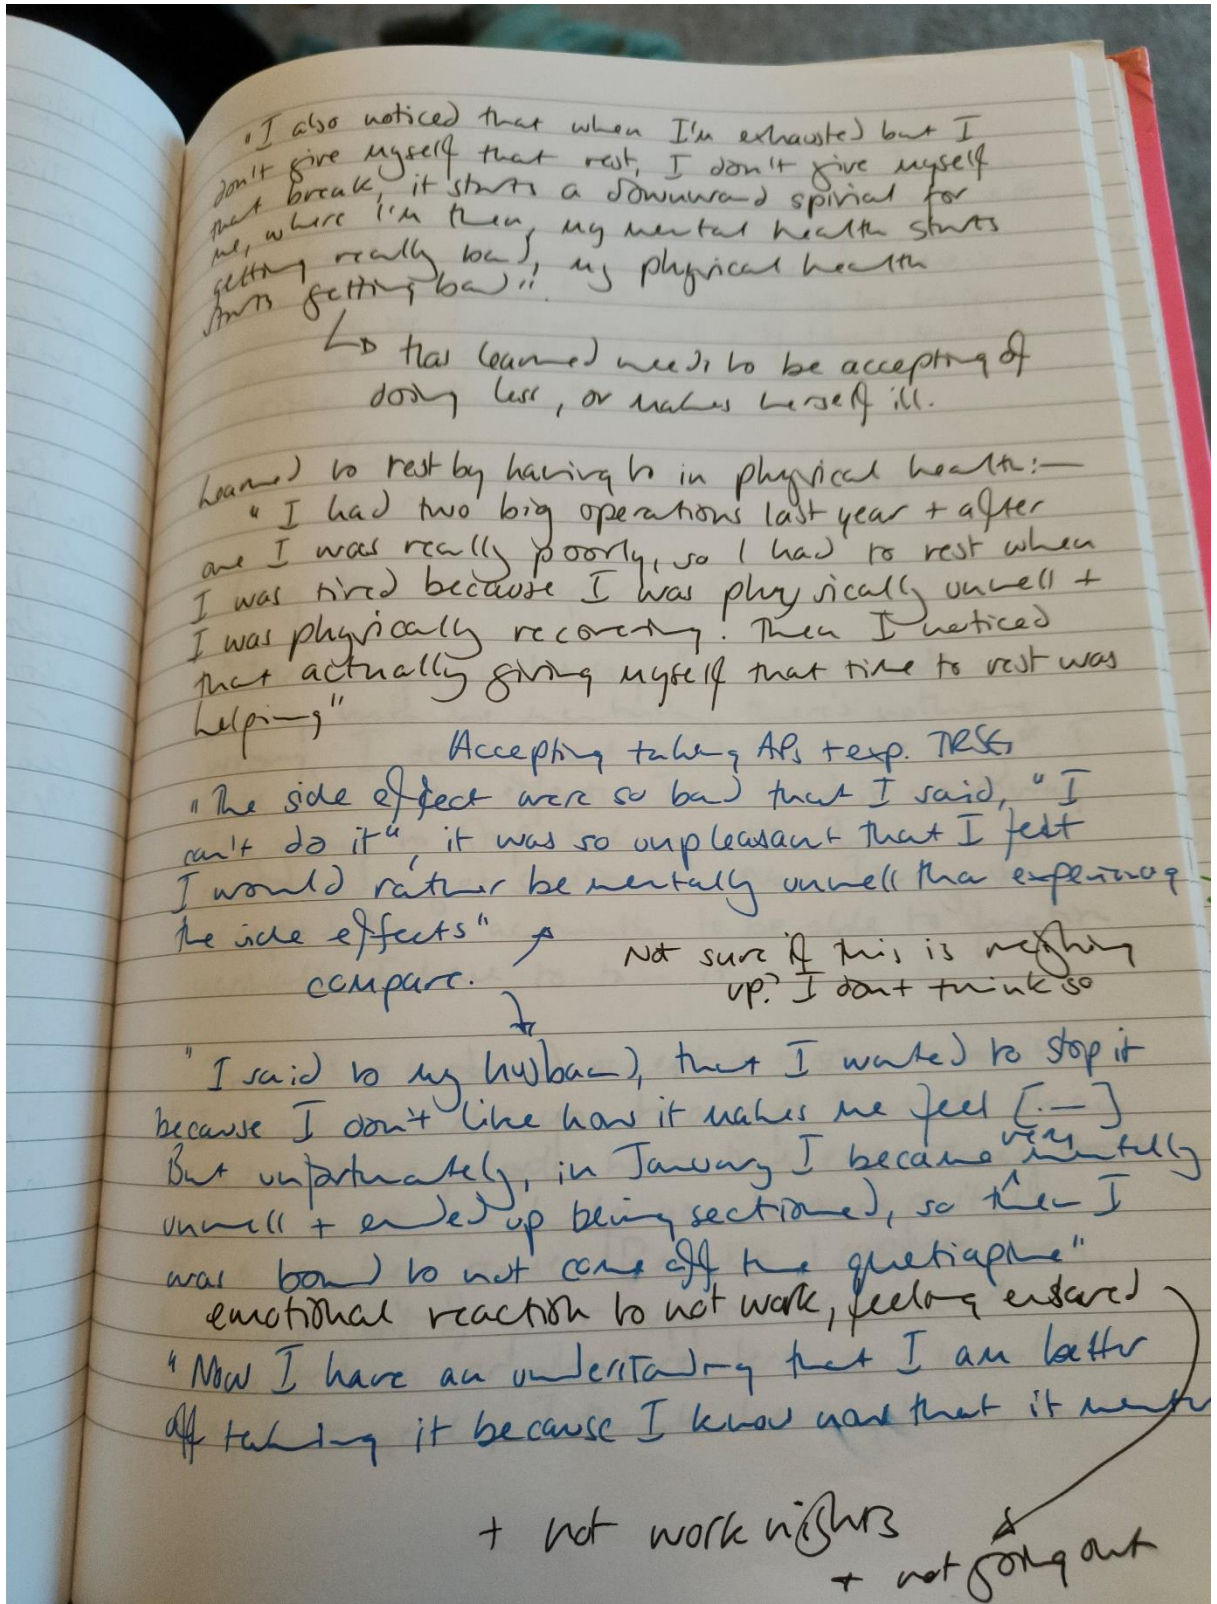 "I also noticed that when I'm exhausted but I
don't give myself that rest, I don't give myself
that break, it starts a downward spirial for
me, where I'm then, my mental health starts
getting really bad, my physical health
starts getting bad".
↳ Has learned needs to be accepting of
doing less, or makes herself ill.
Learned to rest by having to in physical health:—
"I had two big operations last year + after
one I was really poorly, so I had to rest when
I was tired because I was physically unwell +
I was physically recovering. Then I noticed
that actually giving myself that time to rest was
helping"
Accepting taking APs + exp.
"The side effect were so bad that I said, "I
can't do it", it was so unpleasant that I felt
I would rather be mentally unwell than
the side effects"
compare.
Not sure if this is weighing
up? I don't think so
"I said to my husband, that I wanted to stop it
because I don't like how it makes me feel [.—]
But unfortunately, in January I became very mentally
unwell + ended up being sectioned, so then I
was bound to not come off the quetiapine"
emotional reaction to not work, feeling
"Now I have an understanding that I am better
off taking it because I know now that it
+ not work nights
+ not going out